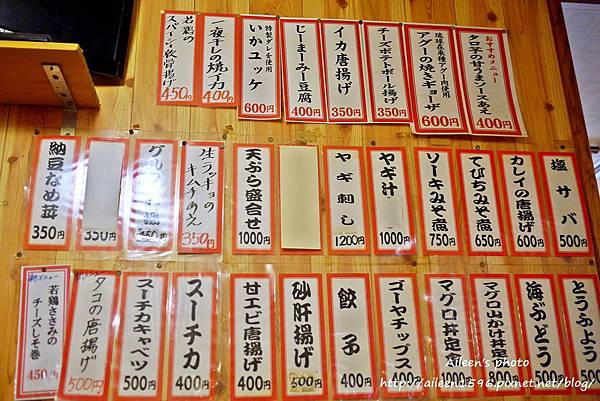 おすすめメニュー
タロ芋の甘うまソースあえ
400円
琉球在来種アグー肉使用
アグーの焼きギョーザ
600円
チーズポテトボール揚げ
350円
イカ唐揚げ
350円
じーまーみー豆腐
400円
特製ダレを使用
いかユッケ
600円
一夜干しの焼イカ
400円
若鶏の
スパーイシ軟骨揚げ
450円
塩サバ
500円
カレイの唐揚げ
600円
てびちみそ煮
650円
ソーキみそ煮
750円
ヤギ汁
1000円
ヤギ刺し
1200円
天ぷら盛合せ
1000円
生ラッキョの
キムチあえ
350円
グル
揚
450円
350円
納豆なめ茸
350円
とうふよう
500円
海ぶどう
500円
マグロ山かけ丼定
マグロ丼定
ゴーヤチップス
餃子
400円
砂肝揚げ
500円
甘エビ唐揚げ
400円
スーチカ
400円
スーチカキャベツ
500円
タコの唐揚げ
500円
新メニュー
若鶏ささみの
チーズしそ巻
450円
Aileen's photo
http://aileen1596.pixnet.net/blog/